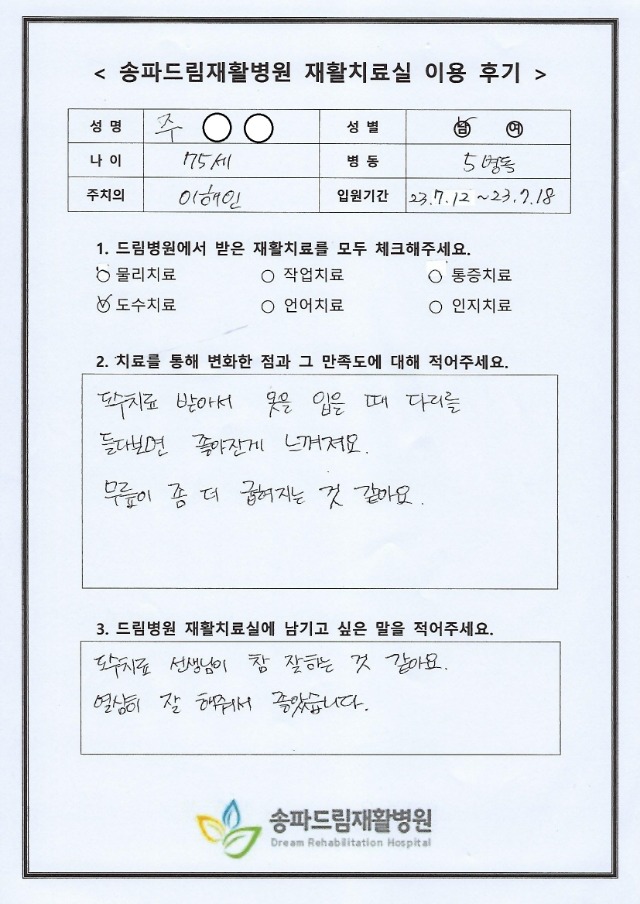 < 송파드림재활병원 재활치료실 이용 후기 >
성 명 주 ○○ 성 별 남 여
나 이 75세 병 동 5병동
주치의 이해인 입원기간 23.7.12 ~ 23.7.18
1. 드림병원에서 받은 재활치료를 모두 체크해주세요.
물리치료 작업치료 통증치료
도수치료 언어치료 인지치료
2. 치료를 통해 변화한 점과 그 만족도에 대해 적어주세요.
도수치료 받아서 옷을 입을 때 다리를
들다보면 좋아진게 느껴져요.
무릎이 좀 더 굽혀지는 것 같아요.
3. 드림병원 재활치료실에 남기고 싶은 말을 적어주세요.
도수치료 선생님이 참 잘하는 것 같아요.
열심히 잘 해줘서 좋았습니다.
송파드림재활병원
Dream Rehabilitation Hospital